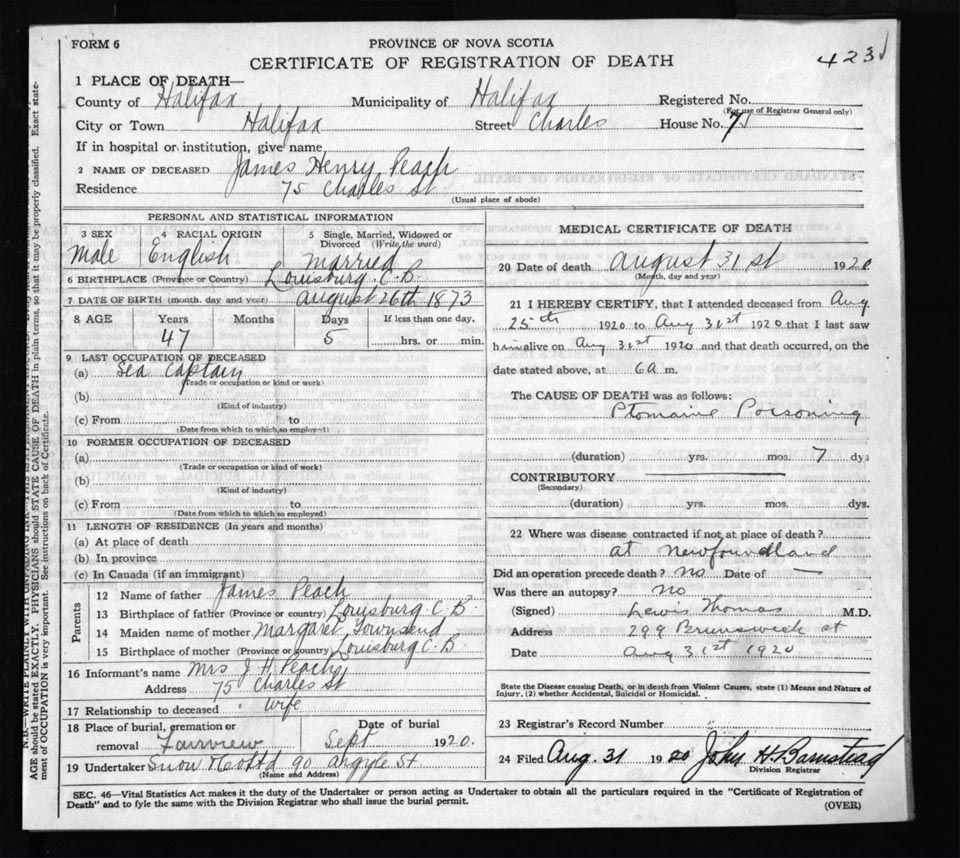 FORM 6
PROVINCE OF NOVA SCOTIA
CERTIFICATE OF REGISTRATION OF DEATH
423
1 PLACE OF DEATH—
County of Halifax Municipality of Halifax Registered No.
(For use of Registrar General only)
City or Town Halifax Street Charles House No. 75
If in hospital or institution, give name
2 NAME OF DECEASED James Henry Peach
Residence 75 Charles St
(Usual place of abode)
PERSONAL AND STATISTICAL INFORMATION
3 SEX 4 RACIAL ORIGIN 5 Single, Married, Widowed or Divorced (Write the word)
Male English Married
6 BIRTHPLACE (Province or Country) Louisburg. C. B.
7 DATE OF BIRTH (month, day and year) August 26th 1873
8 AGE Years Months Days If less than one day,
47 5 hrs. or min.
9 LAST OCCUPATION OF DECEASED
(a) Sea Captain
(Trade or occupation or kind or work)
(b)
(Kind of industry)
(c) From to
(Date from which to which so employed)
10 FORMER OCCUPATION OF DECEASED
(a)
(Trade or occupation or kind of work)
(b)
(Kind of industry)
(c) From to
(Date from which to which employed)
11 LENGTH OF RESIDENCE (In years and months)
(a) At place of death
(b) In province
(c) In Canada (if an immigrant)
Parents
12 Name of father James Peach
13 Birthplace of father (Province or country) Louisburg C. B.
14 Maiden name of mother Margaret Townsend
15 Birthplace of mother (Province or country) Louisburg C. B.
16 Informant's name Mrs J H Peach
Address 75 Charles St
17 Relationship to deceased Wife
18 Place of burial, cremation or Date of burial
removal Fairview Sept 1920.
19 Undertaker Snow & Co Ltd 90 Argyle St
(Name and Address)
MEDICAL CERTIFICATE OF DEATH
20 Date of death August 31st 1920
(Month, day and year)
21 I HEREBY CERTIFY, that I attended deceased from Aug
25th 1920 to Aug 31st 1920 that I last saw
him alive on Aug 31st 1920 and that death occurred, on the
date stated above, at 6 A m.
The CAUSE OF DEATH was as follows:
Ptomaine Poisoning
(duration) yrs. mos. 7 dys
CONTRIBUTORY
(Secondary)
(duration) yrs. mos. dys.
22 Where was disease contracted if not at place of death?
at Newfoundland
Did an operation precede death? No Date of —
Was there an autopsy? No
(Signed) Lewis Thomas M.D.
Address 299 Brunswick St
Date Aug 31st 1920
State the Disease causing Death, or in death from Violent Causes, state (1) Means and Nature of
Injury, (2) whether Accidental, Suicidal or Homicidal.
23 Registrar's Record Number
24 Filed Aug. 31 1920 John H. Barnstead
Division Registrar
SEC. 46—Vital Statistics Act makes it the duty of the Undertaker or person acting as Undertaker to obtain all the particulars required in the "Certificate of Registration of
Death" and to fyle the same with the Division Registrar who shall issue the burial permit.
(OVER)
AGE should be stated EXACTLY. PHYSICIANS should STATE CAUSE OF DEATH in plain terms, so that it may be properly classified. Exact state-
ment of OCCUPATION is very important. See instructions on back of Certificate.